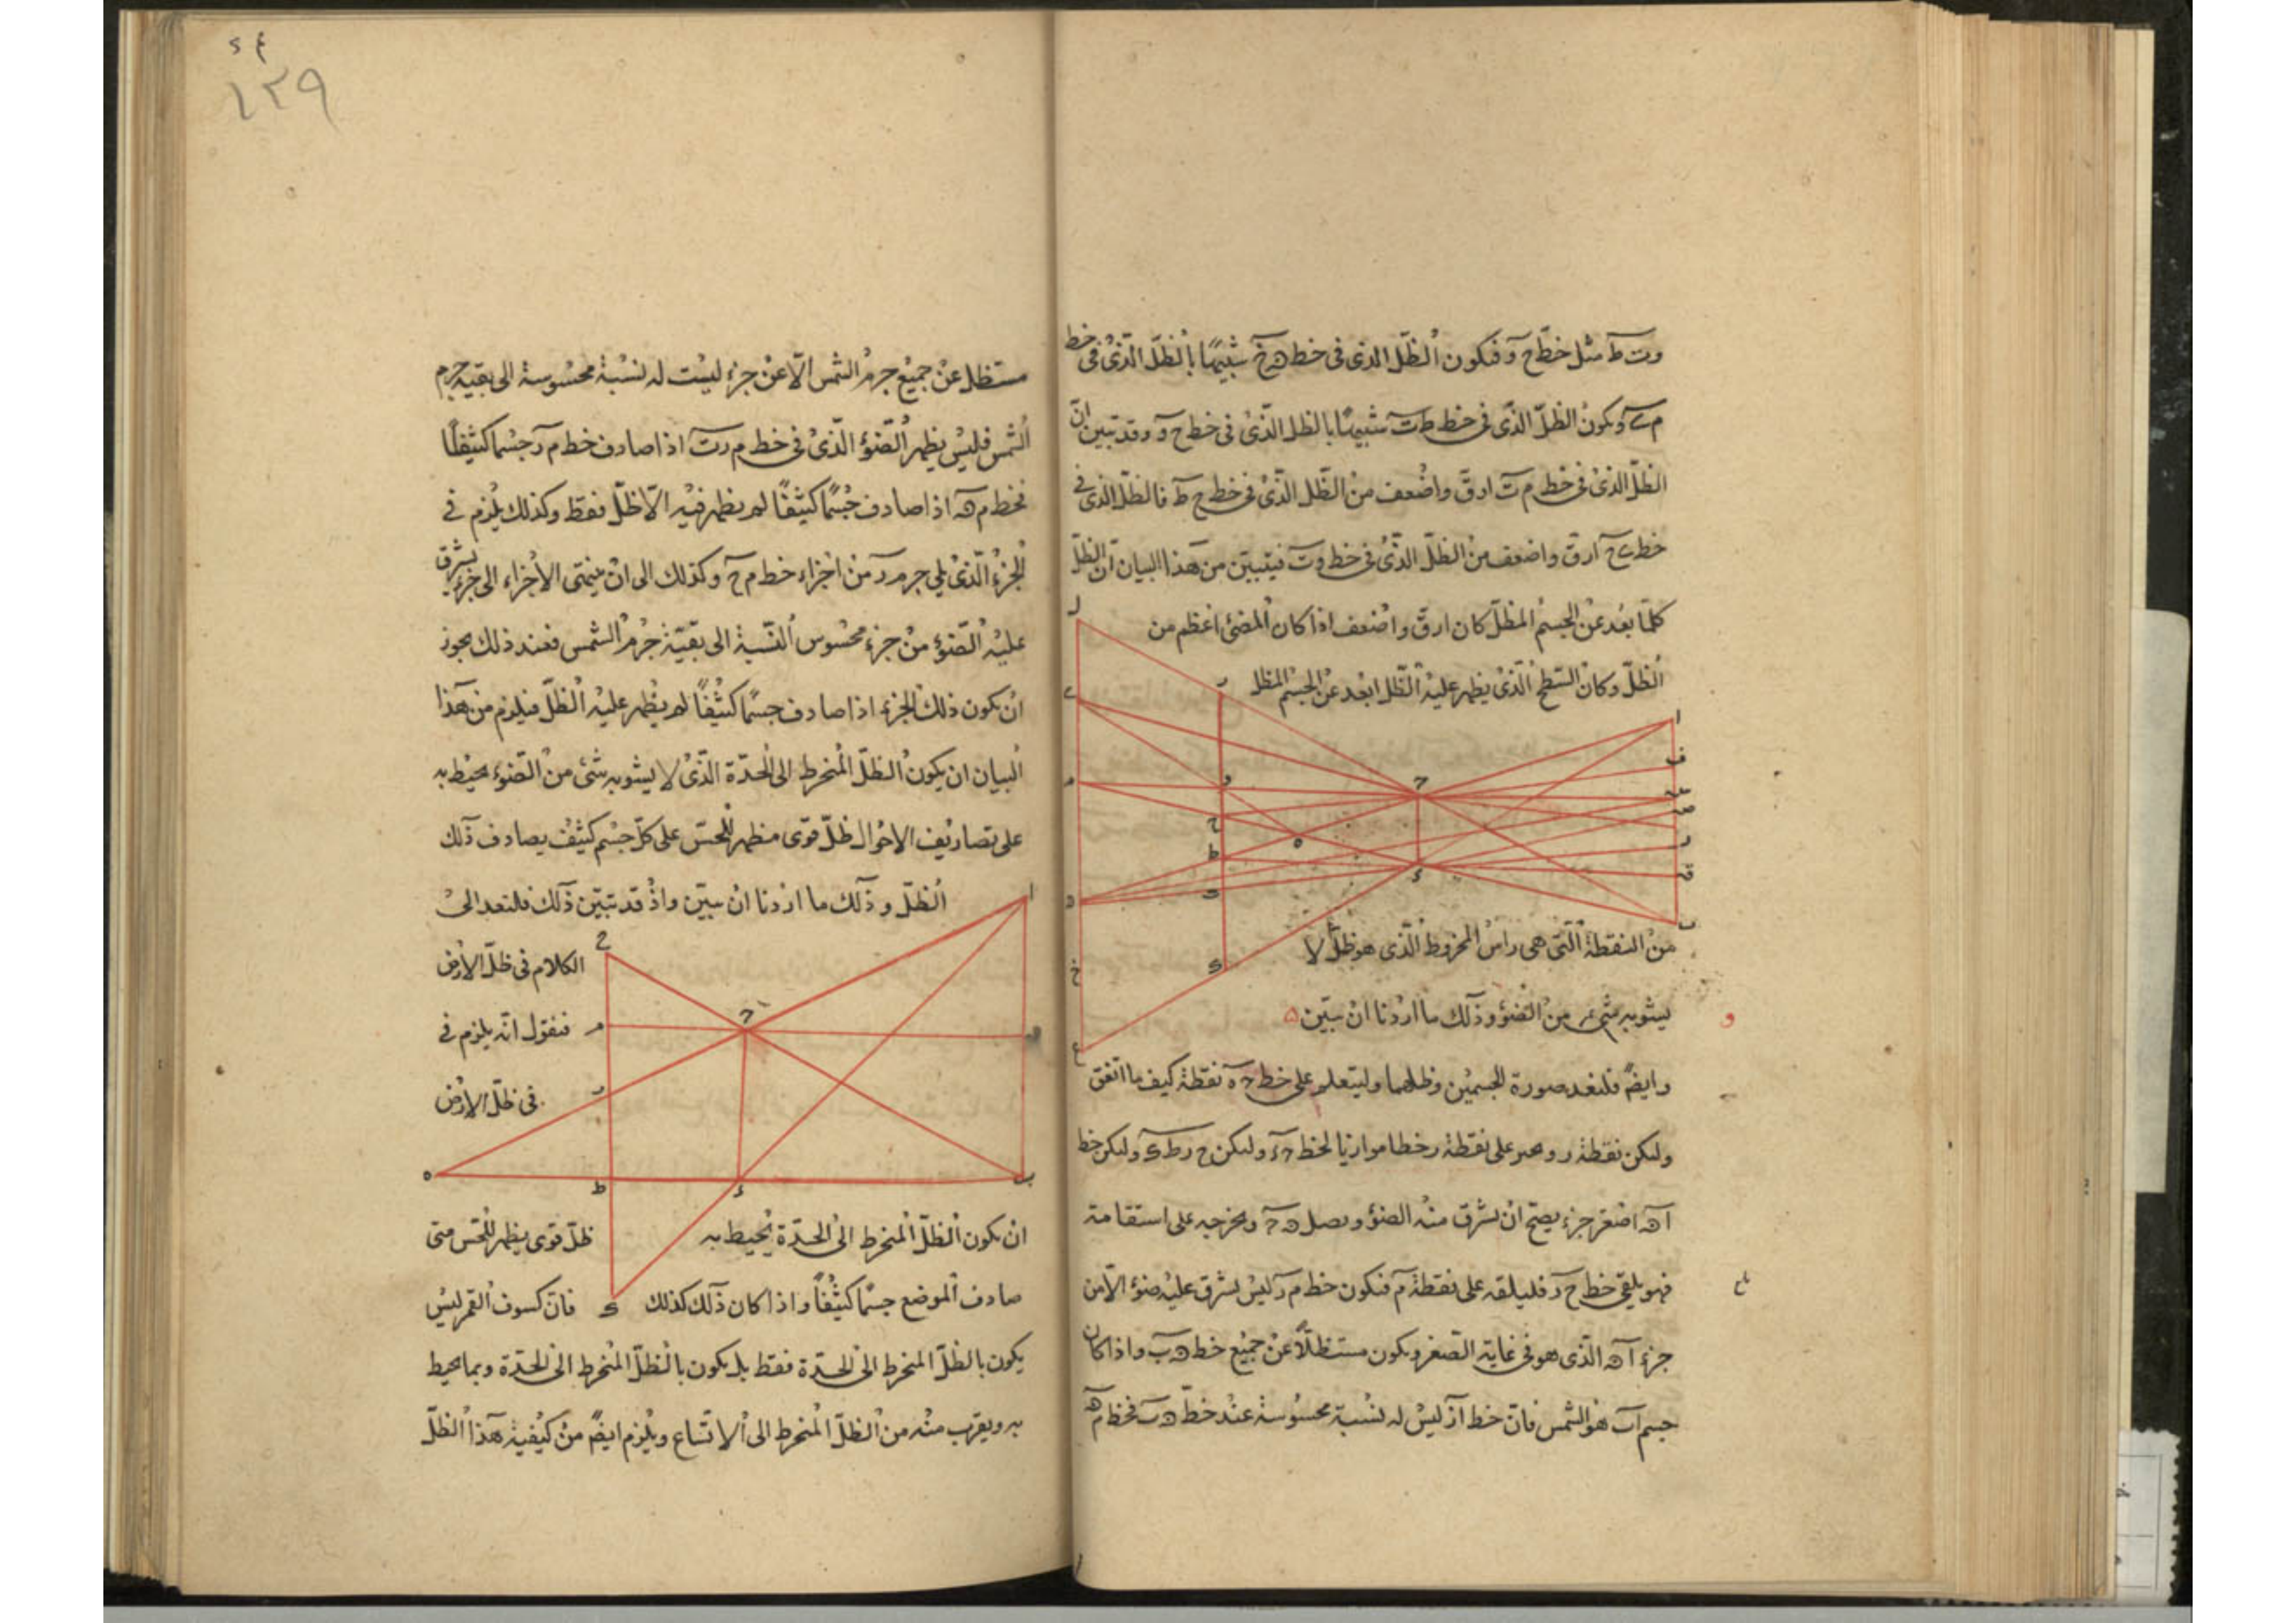 وت ط مثل خط ح و فيكون الظل الذى فى خط ه خ شبيها بالظل الذى فى خط
م ويكون الظل الذى فى خط ط ت شبيها بالظل الذى فى خط ح و وقد تبين ان
الظل الذى فى خط م ت ارق واضعف من الظل الذى فى خط ح ط فالظل الذى فى
خط ارق واضعف من الظل الذى فى خط وت فيتبين من هذا البيان ان الظل
كلما بعد عن الجسم المظل كان ارق واضعف اذا كان المضئ اعظم من
الظل وكان السطح الذى يظهر عليه الظل ابعد عن الجسم المظل
من النقطة التى هى راس المخروط الذى هو ظل لا
يشوبه شىء من الضوء وذلك ما اردنا ان نبين ه
و
وايضا فلنعد صورة الجسمين وظلهما وليتعلم على خط ح ه نقطة كيف ما اتفق
وليكن نقطة ر على نقطة ر خطا موازيا لخط ح د وليكن ح ر ط ى وليكن خط
ا ه اصغر جزء يصح ان يشرق منه الضوء ويصل ه ح ويخرجه على استقامة
فهو يلقى خط ح ر فليلقه على نقطة م فيكون خط م ر ليس يشرق عليه ضوء الا من
جزء ا ه الذى هو فى غاية الصغر ويكون مستظلا عن جميع خط ه ب واذا كان
جسم ا ب هو الشمس فان خط ا ليس له نسبة محسوسة عند خط ه ب فخط م ه
١٣٩
مستظل عن جميع جرم الشمس الا عن جزء ليست له نسبة محسوسة الى بقية جرم
الشمس فليس يظهر الضوء الذى فى خط م ر اذا صادف خط م ر جسما كثيفا
فخط م ه اذا صادف جسما كثيفا لم يظهر فيه الا ظل فقط وكذلك يلزم فى
الجزء الذى يلى جزء م ر من اجزاء خط م ح وكذلك الى ان ينتهى الاجزاء الى جزء يشرق
عليه الضوء من جزء محسوس النسبة الى بقية جرم الشمس فعند ذلك يجوز
ان يكون ذلك الجزء اذا صادف جسما كثيفا لم يظهر عليه الظل فيلزم من هذا
البيان ان يكون الظل المنخرط الى الحدة الذى لا يشوبه شئ من الضوء يحيط به
على تصاريف الاحوال ظل قوى مظهر للحس على كل جسم كثيف يصادف ذلك
الظل وذلك ما اردنا ان نبين واذ قد تبين ذلك فلنعد الى
الكلام فى ظل الارض
فنقول انه يلزم فى
فى ظل الارض
ان يكون الظل المنخرط الى الحدة يحيط به ظل قوى يظهر للحس متى
صادف الموضع جسما كثيفا واذا كان ذلك كذلك فان كسوف القمر ليس
يكون بالظل المنخرط الى الحدة فقط بل يكون بالظل المنخرط الى الحدة وبما يحيط
به ويقرب منه من الظل المنخرط الى الاتساع ويلزم ايضا من كيفية هذا الظل